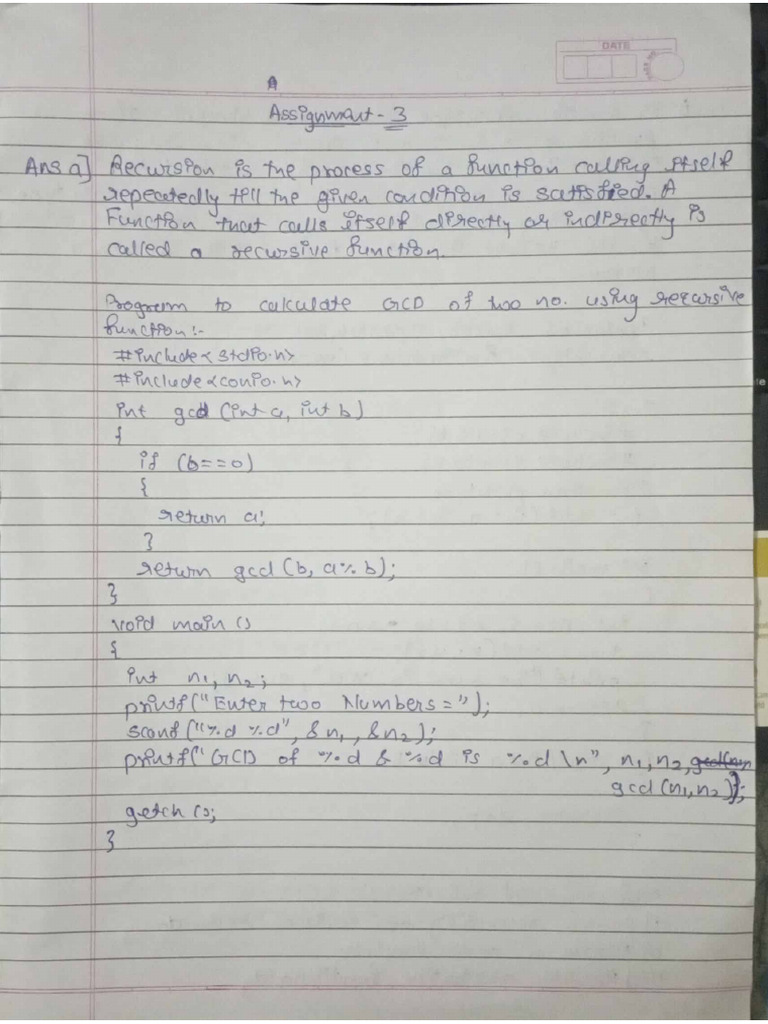 DATE
A
Assignment - 3
Ans a] Recursion is the process of a function calling itself
repeatedly till the given condition is satisfied. A
Function that calls itself directly or indirectly is
called a recursive function.
Program to calculate GCD of two no. using recursive
function :-
#include < stdio.h>
#include <conio.h>
int gcd (int a, int b)
{
if (b==0)
{
return a;
}
return gcd (b, a % b);
}
void main ()
{
int n1, n2;
printf("Enter two Numbers = ");
scanf ("%d %d", &n1, &n2);
printf(" GCD of %d & %d is %d \n", n1, n2,
gcd (n1, n2));
getch ();
}